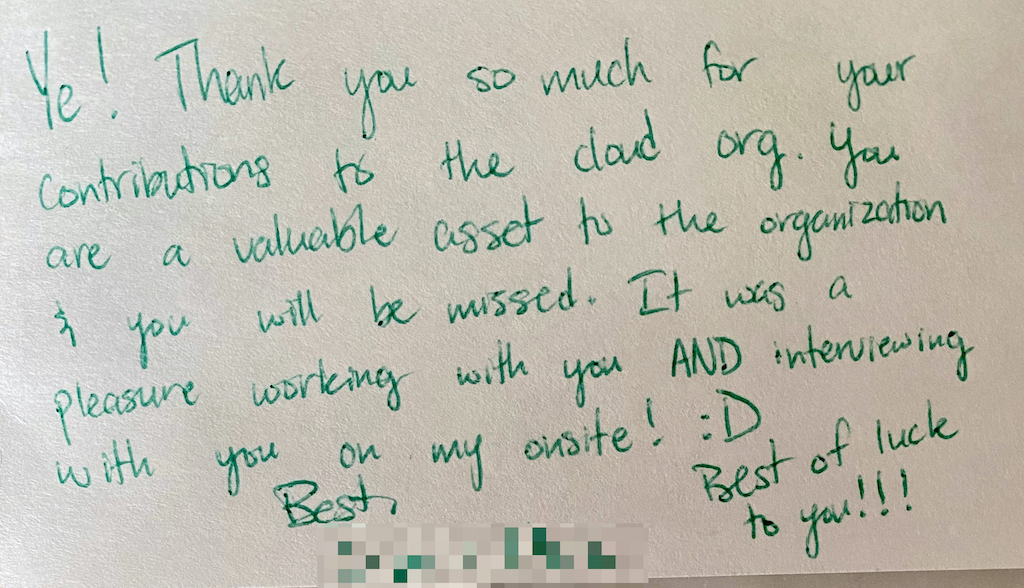 Ye! Thank you so much for your
contributions to the cloud org. You
are a valuable asset to the organization
& you will be missed. It was a
pleasure working with you AND interviewing
with you on my onsite! :D
Best,
Best of luck
to you!!!